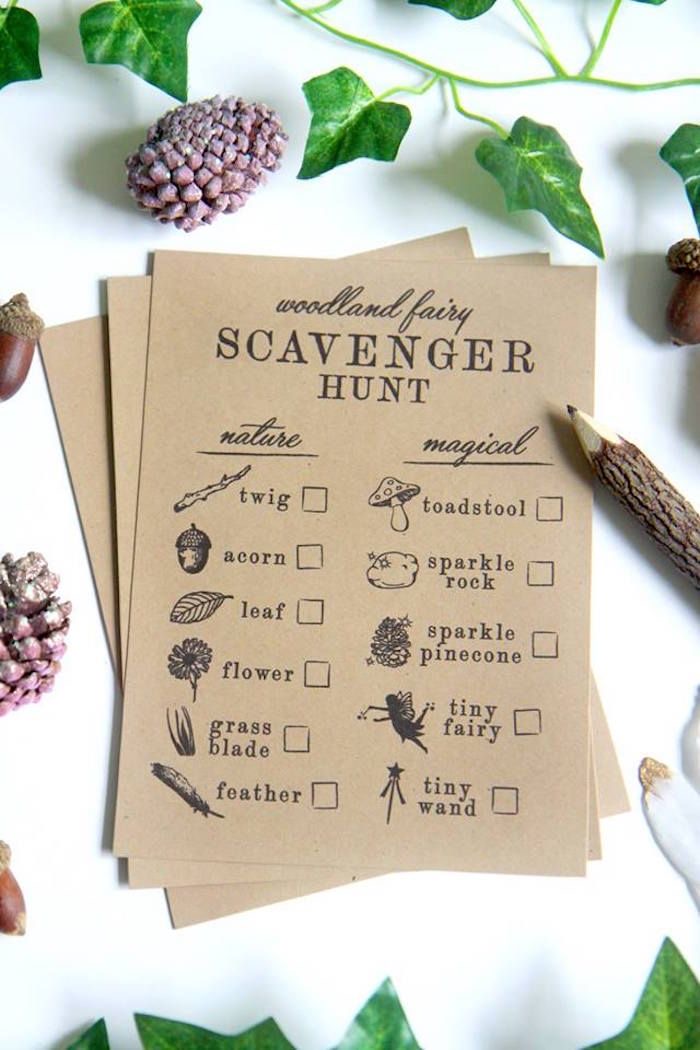 woodland fairy
SCAVENGER
HUNT
nature
twig
acorn
leaf
flower
grass
blade
feather
magical
toadstool
sparkle
rock
sparkle
pinecone
tiny
fairy
tiny
wand